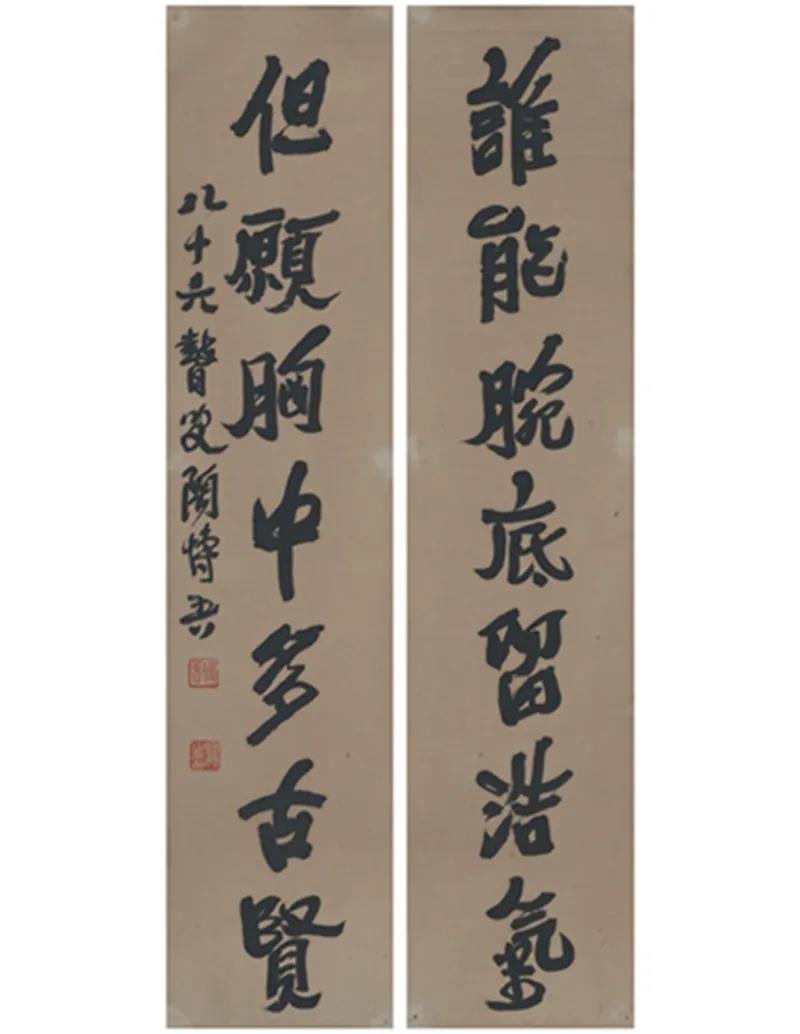 誰能腕底留浩氣
但願胸中多古賢
八十六瞽叟陶博吾